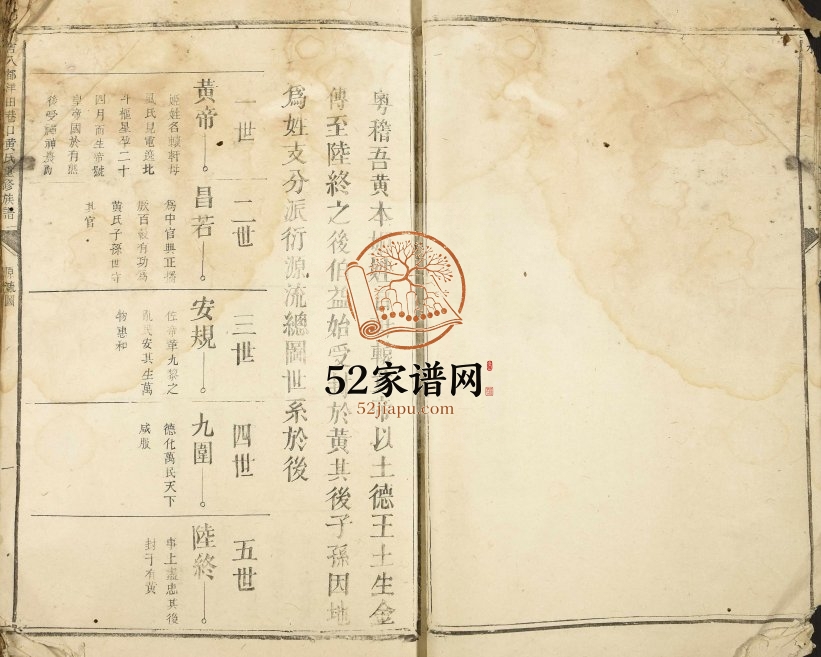 粵稽吾黃本
帝以土德王土生金
傳至陸終之後伯益始受
於黃其後子孫因地
爲姓支分派衍源流總圖世系於後
一世
黃帝
姬姓名軒轅母
氏見電遶北
斗樞星孕二十
四月而生帝號
皇帝國於有熊
後受
二世
昌若
爲中官典正播
厥百穀有功爲
黃氏子孫世守
其官
三世
安規
佐帝華九黎之
亂民安其生萬
物惠和
四世
九圍
德化萬民天下
咸服
五世
陸終
事上盡忠其後
封于有黃
港口黃氏重修族譜
一
52家谱网
52jiapu.com